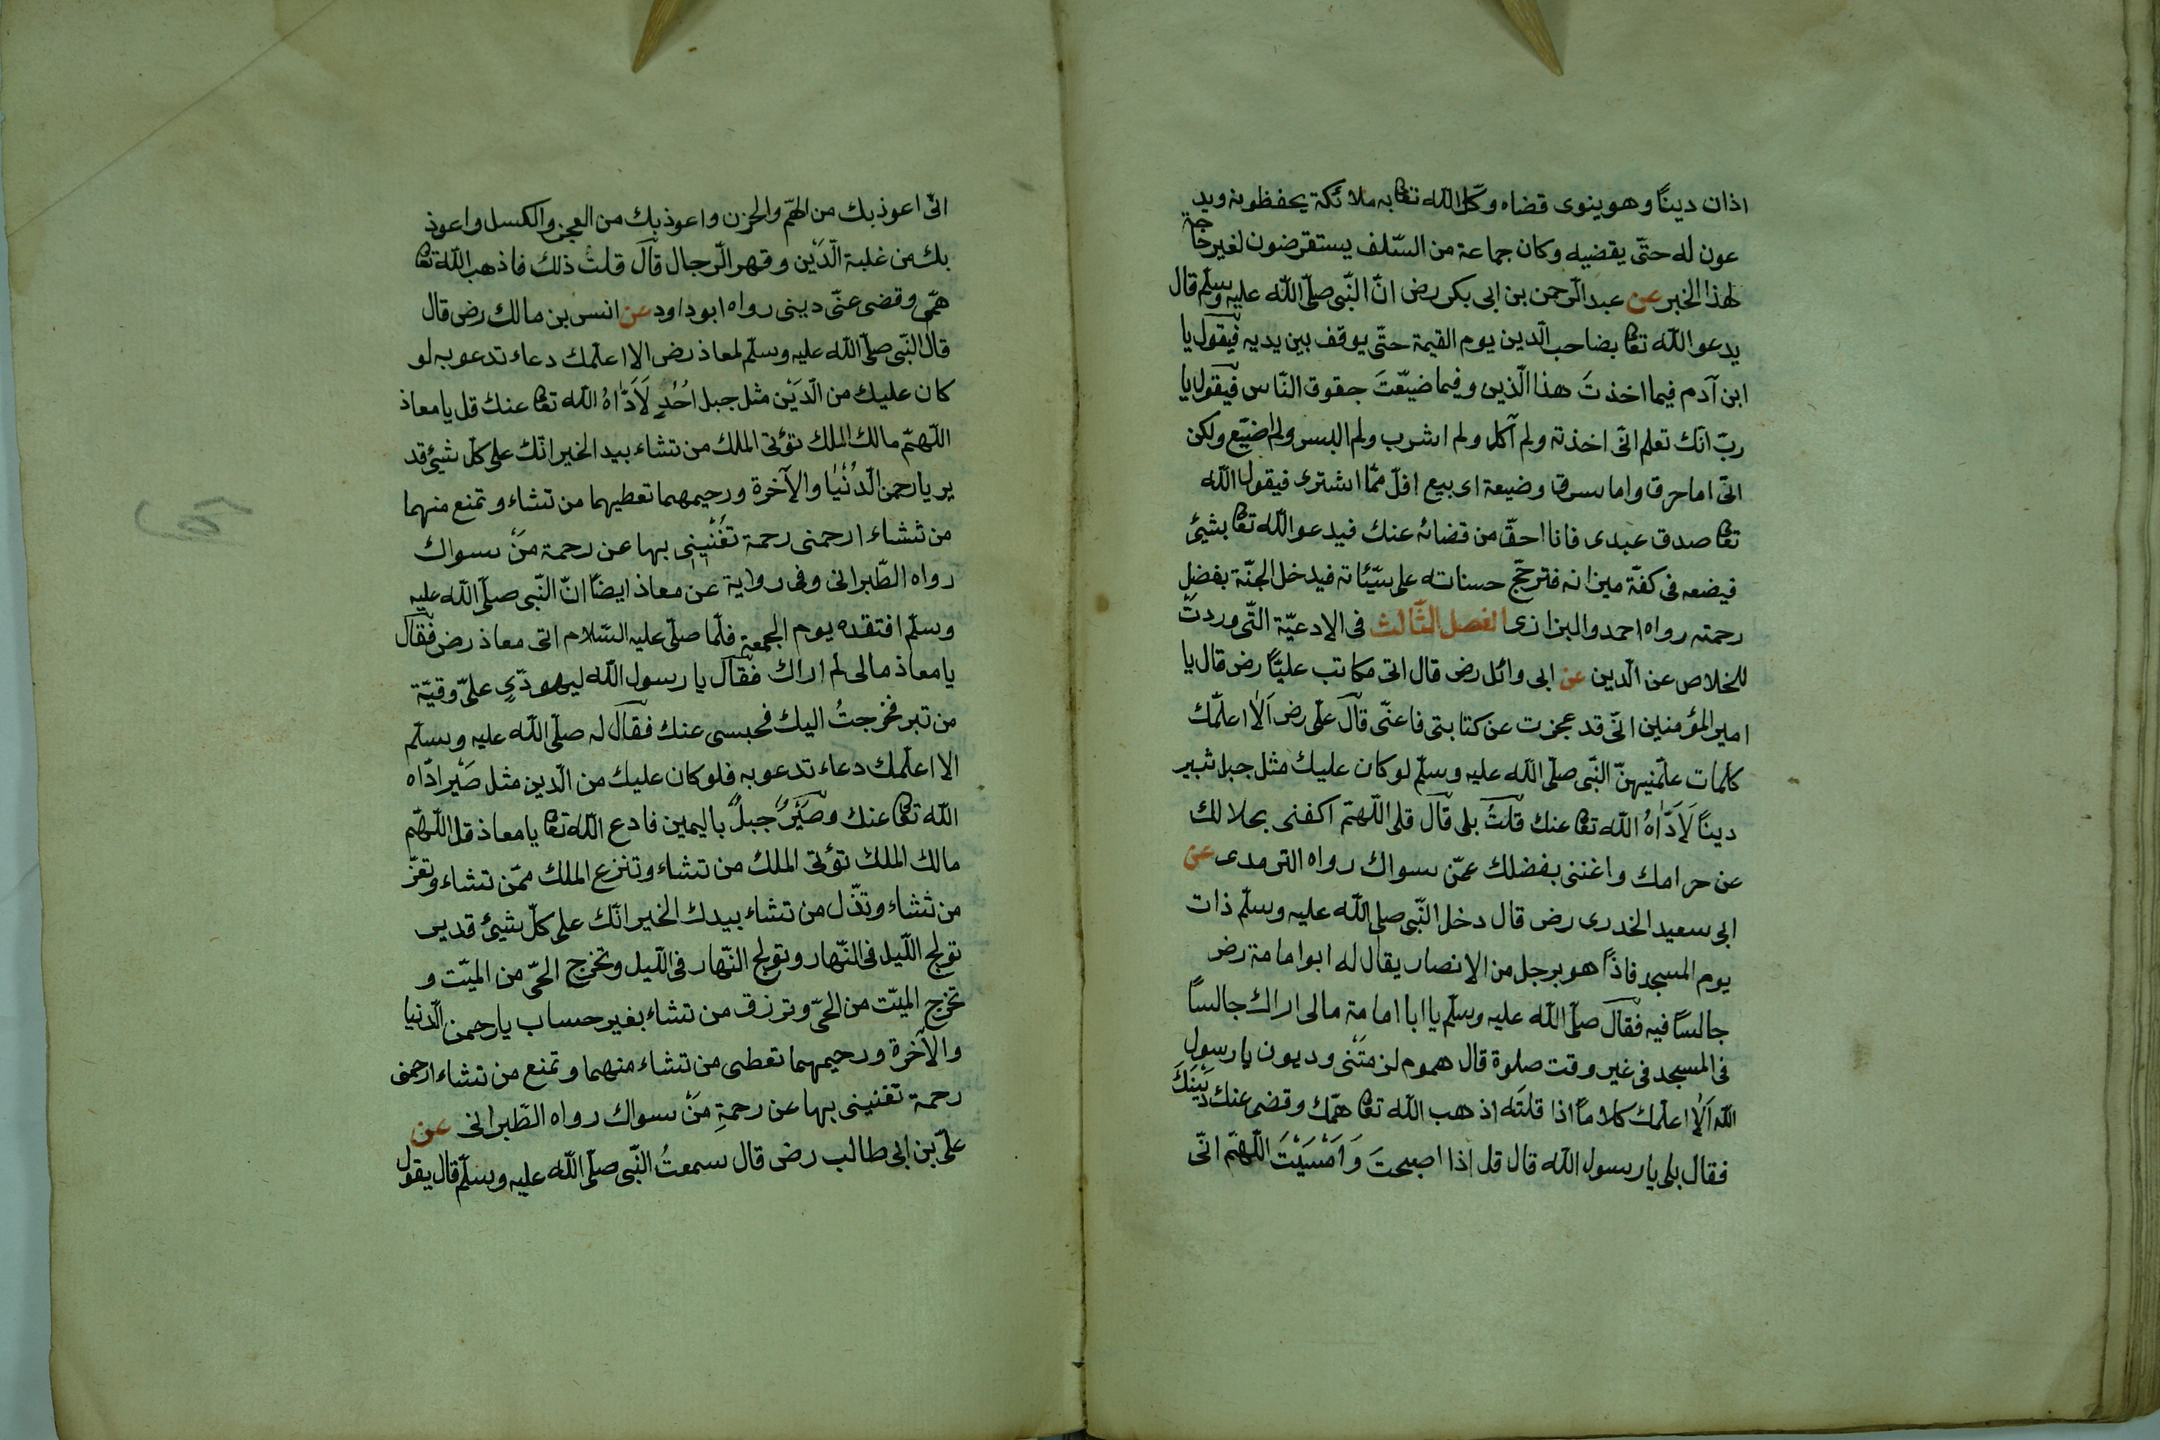 اذان دينًا وهو ينوى قضاه وكّل الله تعا به ملائكة يحفظونه ويد
عون له حتّى يقضيه وكان جماعة من السّلف يستقرضون لغير حاجة
لهذا الخبر عن عبد الرّحمن بن ابى بكر رض انّ النّبى صلّى الله عليه وسلّم قال
يدعو الله تعا بصاحب الدّين يوم القيمة حتّى يوقف بين يديه فيقول يا
ابن آدم فيما اخذتَ هذا الّذين وفيما ضيّعتَ حقوق النّاس فيقول يا
ربّ انّك تعلم انّى اخذته ولم آكل ولم اشرب ولم البس ولم اضيّع ولكن
انّى اما حرق واما سرق وضيعة اى بيع اقلّ ممّا اشترى فيقول الله
تعا صدق عبدى فانا احقّ من قضائه عنك فيدعو الله تعا بشيئ
فيضعه فى كفّة ميزانه فترجّح حسناته على سيّئاته فيدخل الجنّة بفضل
رحمته رواه احمد والبزازى الفصل الثّالث فى الادعيّة التّى وردت
للخلاص عن الّدين عن ابى وائل رض قال اتى مكاتب عليًّا رض قال يا
امير المؤمنين انّى قد عجزت عن كتابتى فاعنّى قال علّى رض اَلَا اعلّمك
كلمات علّمنيهنّ النّبى صلّى الله عليه وسلّم لو كان عليك مثل جبل ثبير
دينًا لَاَدّاهُ الله تعا عنك قلتُ بلى قال قل اللّهمّ اكفنى بحلالك
عن حرامك واغننى بفضلك عمّن سواك رواه الترمدى عن
ابى سعيد الخدرى رض قال دخل النّبى صلى الله عليه وسلّم ذات
يوم المسجد فاذًا هو برجل من الانصار يقال له ابو امامة رض
جالسًا فيه فقال صلّى الله عليه وسلّم يا ابا امامة مالى اراك جالسًا
فى المسجد فى غير وقت صلوة قال هموم لزمتَنى وديون يا رسول
الله اَلَا اعلّمك كلامًا اذا قلتَه اذهب الله تعا همّك وقضى عنك دَيْنَكَ
فقال بلى يا رسول الله قال قل اذا اصبحتَ وَاَمْسَيْتَ اللّهمّ انّى
انّى اعوذ بك من الهمّ والحزن واعوذ بك من العجز والكسل واعوذ
بك من غلبة الّدَيْن وقهر الّرجال قال قلتُ ذلك فاذهب الله تعا
همّى وقضى عنّى دينى رواه ابو داود عن انس بن مالك رض قال
قال النّبى صلّى الله عليه وسلّم لمعاذ رض الا اعلّمك دعاء تدعو به لو
كان عليك من الّدَيْن مثل جبل اُحُدٍ لَاَدّاهُ الله تعا عنك قل يا معاذ
اللّهمّ مالك الملك تؤتى الملك من تشاء بيد الخير انّك على كلّ شيئ قد
ير يا رحمن الّدُنْيَا والآخرة ورحيمهما تعطيهما من تشاء وتمنع منهما
من تشاء ارحمنى رحمة تغْنينى بها عن رحمة مَنْ سواك
رواه الطّبرانى وفى رواية عن معاذ ايضًا انّ النّبى صلّى الله عليه
وسلّم افتقده يوم الجمعة فلمّا صلّى عليه السّلام اتى معاذ رض فقال
يا معاذ مالى لم اراك فقال يا رسول الله ليهودّىٍ علىّ وقيّة
من تبر فخرجتُ اليك فحبسى عنك فقال له صلّى الله عليه وسلّم
الا اعلّمك دعاء تدعو به فلو كان عليك من الّدين مثل صَيْر ادّاه
الله تعا عنك وصَيْرٌ جبلٌ باليمين فادع الله تعا يا معاذ قل اللّهمّ
مالك الملك تؤتى الملك من تشاء وتنزع الملك ممّن تشاء وتعزّ
من تشاء وتذّل من تشاء بيدك الخير انّك على كلّ شيئ قدير
تولج اللّيل فى النّهار وتولج النّهار فى اللّيل وتخرج الحىّ من الميّت و
تخرج الميّت من الحىّ وترزق من تشاء بغير حساب يا رحمن الّدنيا
والآخرة ورحيمهما تعطى من تشاء منهما وتمنع من تشاء ارحمنى
رحمة تغنينى بها عن رحمةِ مَنْ سواك رواه الطّبرانى عن
علىّ بن ابى طالب رض قال سمعتُ النّبى صلّى الله عليه وسلّم قال يقول